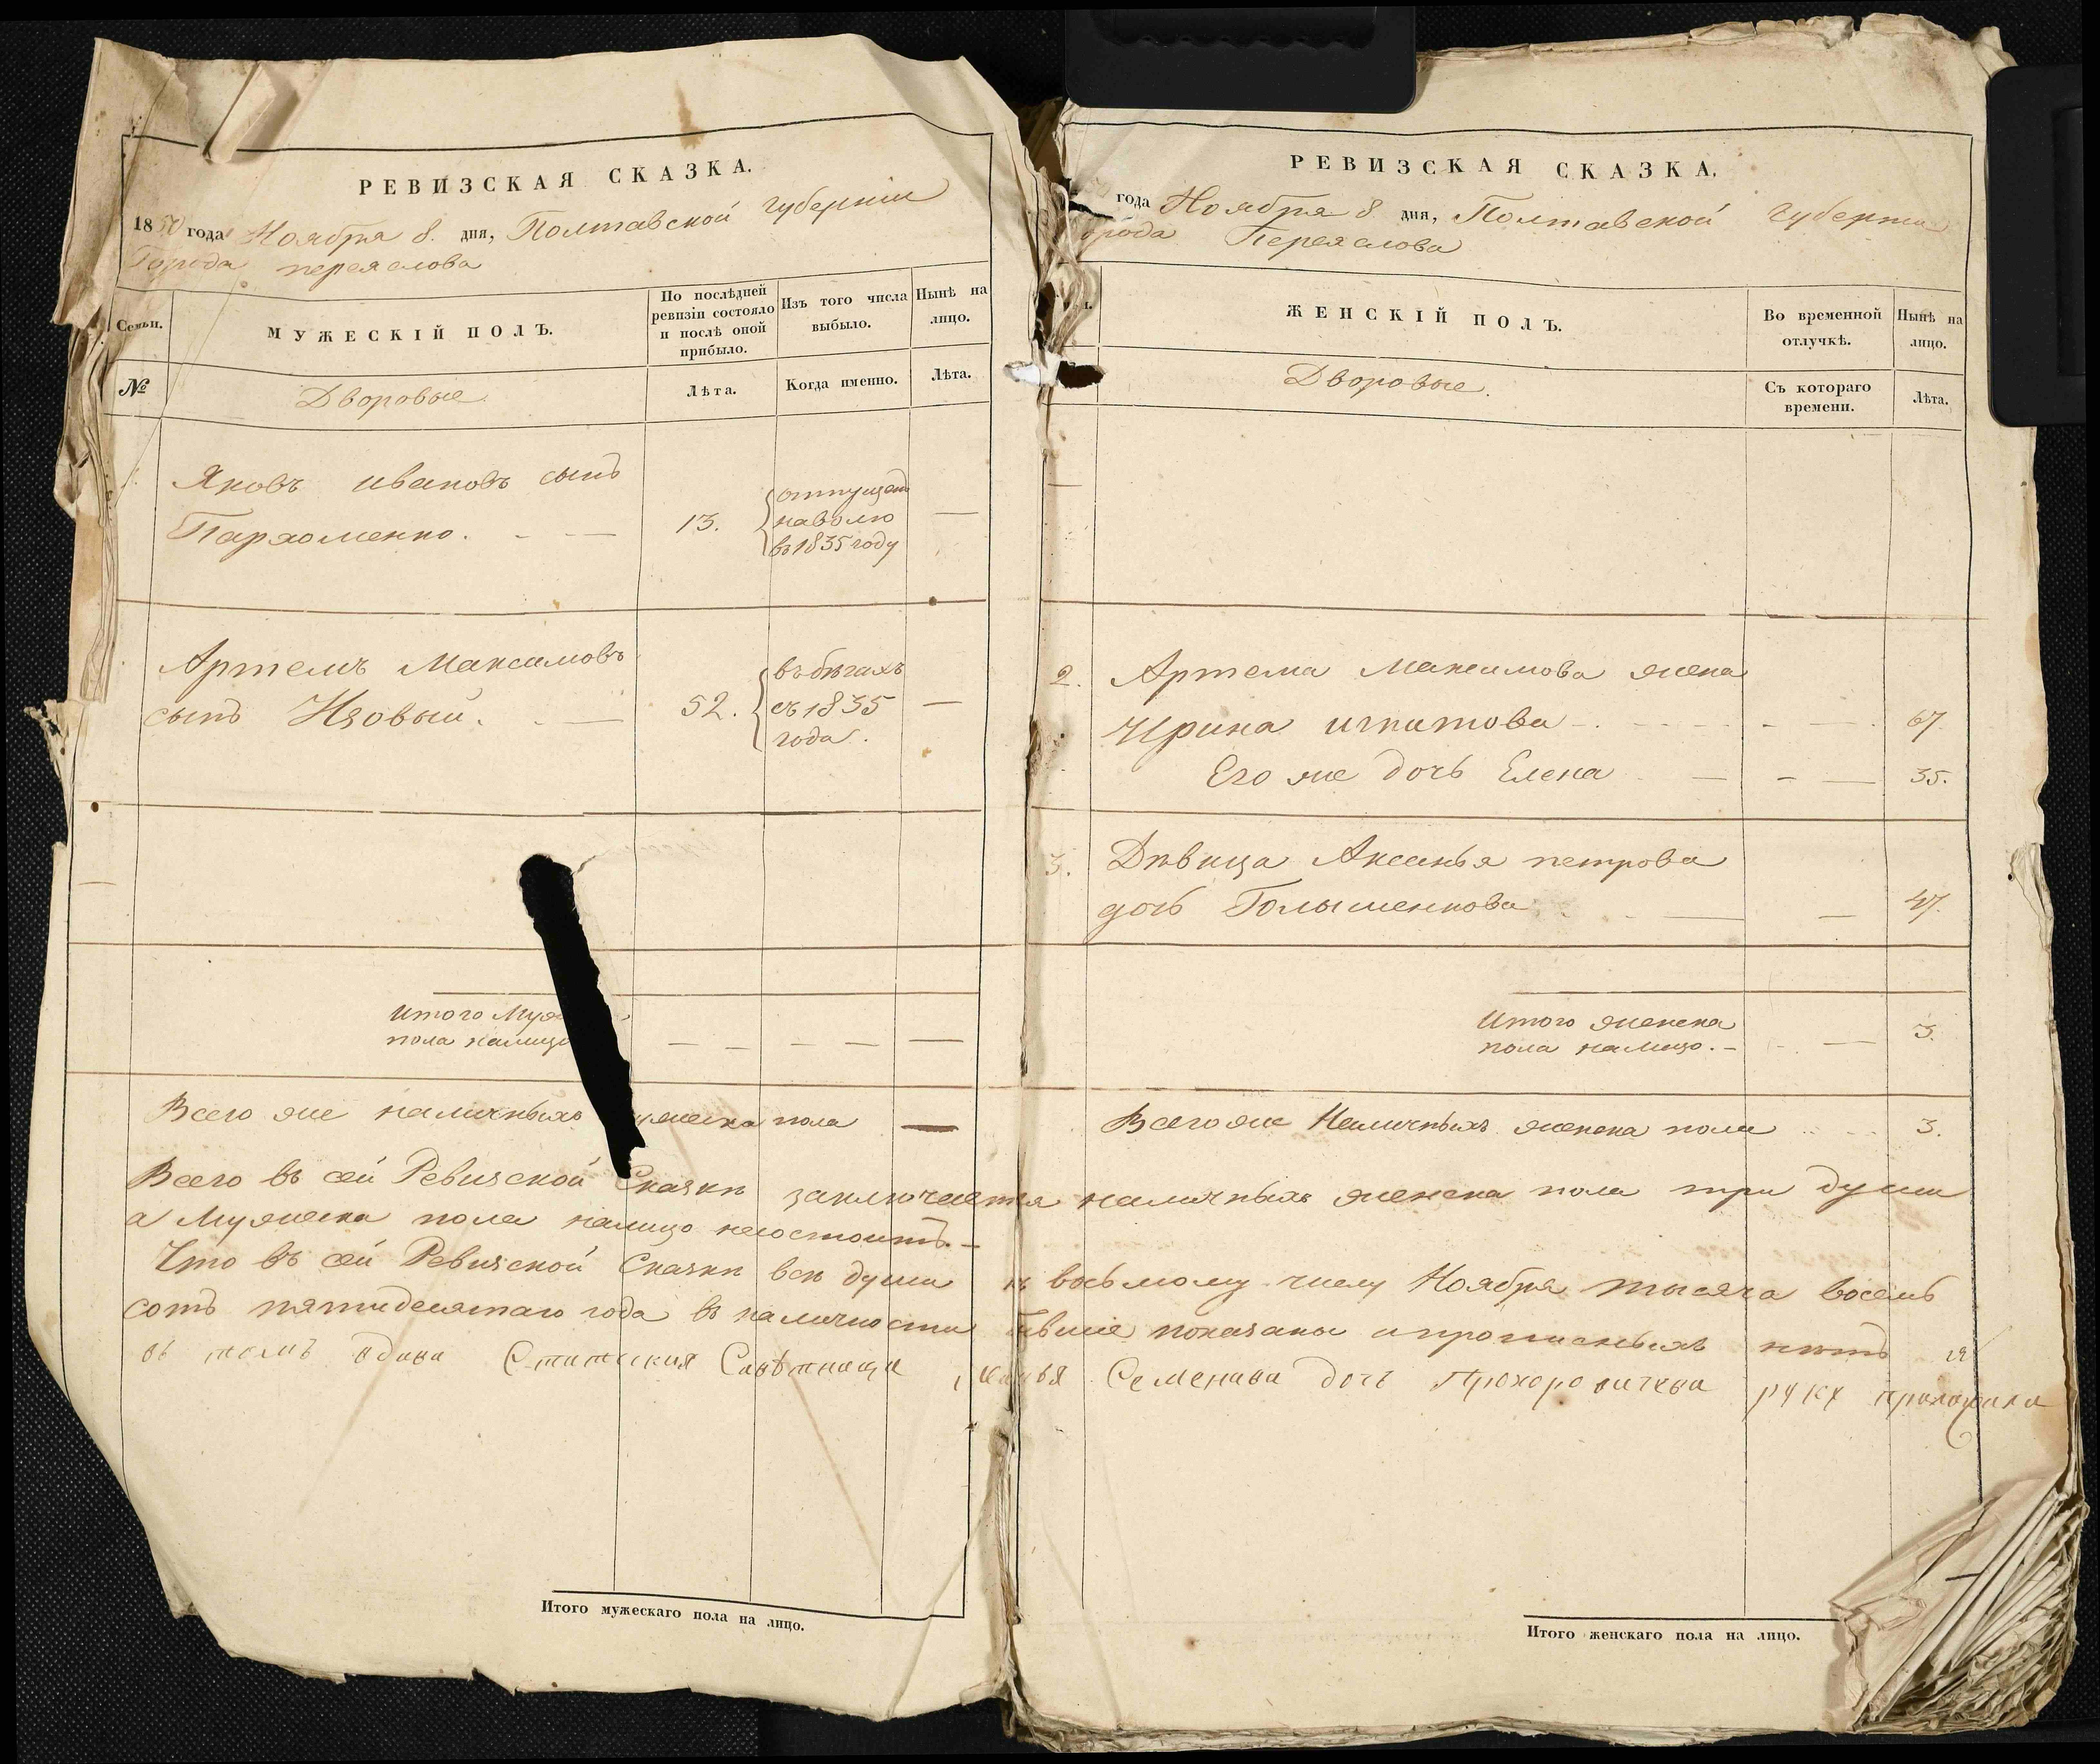 РЕВИЗСКАЯ СКАЗКА.
1850 года Ноября 8. дня, Полтавской губерніи
Города переяслова
Семьи.
МУЖЕСКІЙ ПОЛЪ.
По послѣдней ревизіи состояло и послѣ оной прибыло.
Изъ того числа выбыло.
Нынѣ на лицо.
№
Дворовые
Лѣта.
Когда именно.
Лѣта.
1.
Яковъ ивановъ сынъ
Пархоменко.
13.
отпущенъ
наволю
въ 1835 году
Артемъ Максимовъ
сынъ Нзовый.
52.
въ бѣгахъ
съ 1835
года.
итого Муж
пола налицо
Всего же наличныхъ мужеска пола
Всего въ сей Ревизской Сказкѣ заключается
а Мужеска пола налицо несостоитъ.
Что въ сей Ревизской Сказкѣ всѣ души
сотъ пятидесятаго года въ наличности
въ томъ вдова Статская Совѣтница
Итого мужескаго пола на лицо.
РЕВИЗСКАЯ СКАЗКА.
года Ноября 8 дня, Полтавской губерніи
города Переяслова
ЖЕНСКІЙ ПОЛЪ.
Во временной отлучкѣ.
Нынѣ на лицо.
Дворовые.
Съ котораго времени.
Лѣта.
2.
Артема Максимова жена
Ирина игнатова
67.
Его же дочь Елена
35.
3.
Дѣвица Аксенья петрова
дочь Голышенкова
47.
итого женска
пола налицо.
3.
Всего же Наличныхъ женска пола
3.
наличныхъ женска пола три души
къ восьмому числу Ноября тысяча восемь
бывшіе показаны и прописныхъ нѣтъ
Семенова дочь Прохоровичева руку приложила
Итого женскаго пола на лицо.